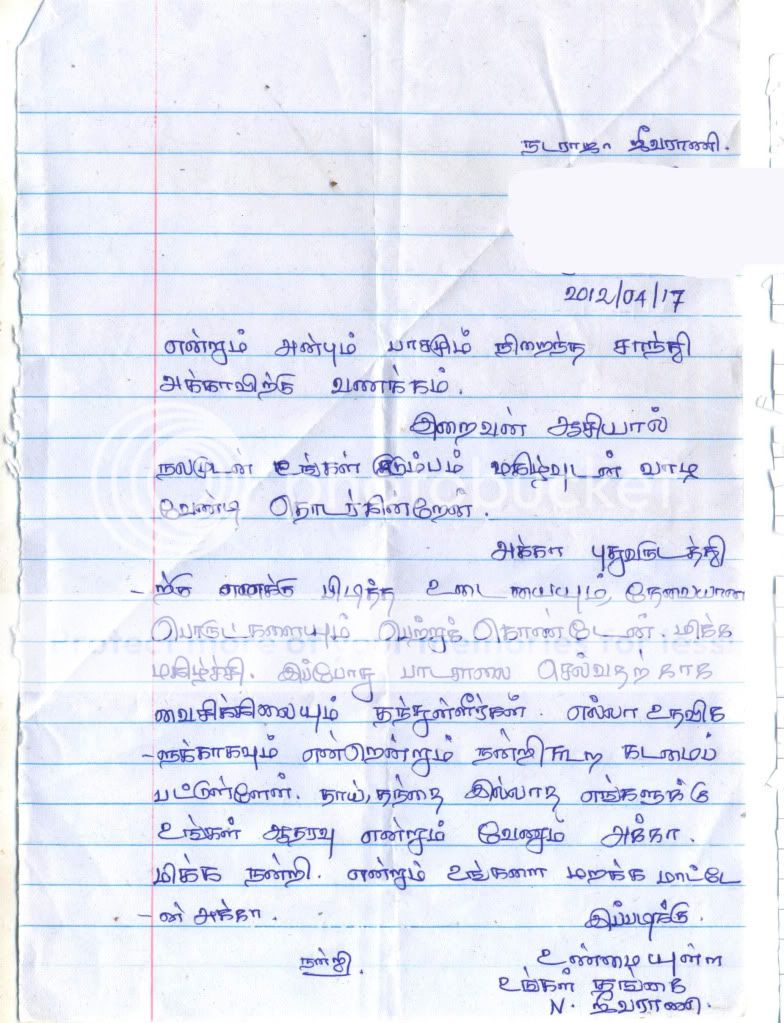 நடராஜா ஜீவராணி.
2012/04/17
என்றும் அன்பும் பாசமும் நிறைந்த சாந்தி
அக்காவிற்கு வணக்கம்.
இறைவன் ஆசியால்
நலமுடன் உங்கள் குடும்பம் மகிழ்வுடன் வாழ
வேண்டி தொடர்கின்றேன்.
அக்கா புதுவருடத்தி
-ற்கு எனக்கு பிடித்த உடையையும், தேவையான
பொருட்களையும் பெற்றுக் கொண்டேன். மிக்க
மகிழ்ச்சி. இப்போது பாடசாலை செல்வதற்காக
வைசிக்கிலையும் தந்துள்ளீர்கள். எல்லா உதவிக
-ளுக்காகவும் என்றென்றும் நன்றிகூற கடமைப்
பட்டுள்ளேன். தாய், தந்தை இல்லாத எங்களுக்கு
உங்கள் ஆதரவு என்றும் வேணும் அக்கா.
மிக்க நன்றி. என்றும் உங்களை மறக்க மாட்டே
-ன் அக்கா.
இப்படிக்கு.
நன்றி.
உண்மையுள்ள
உங்கள் தங்கை
N. ஜீவராணி.